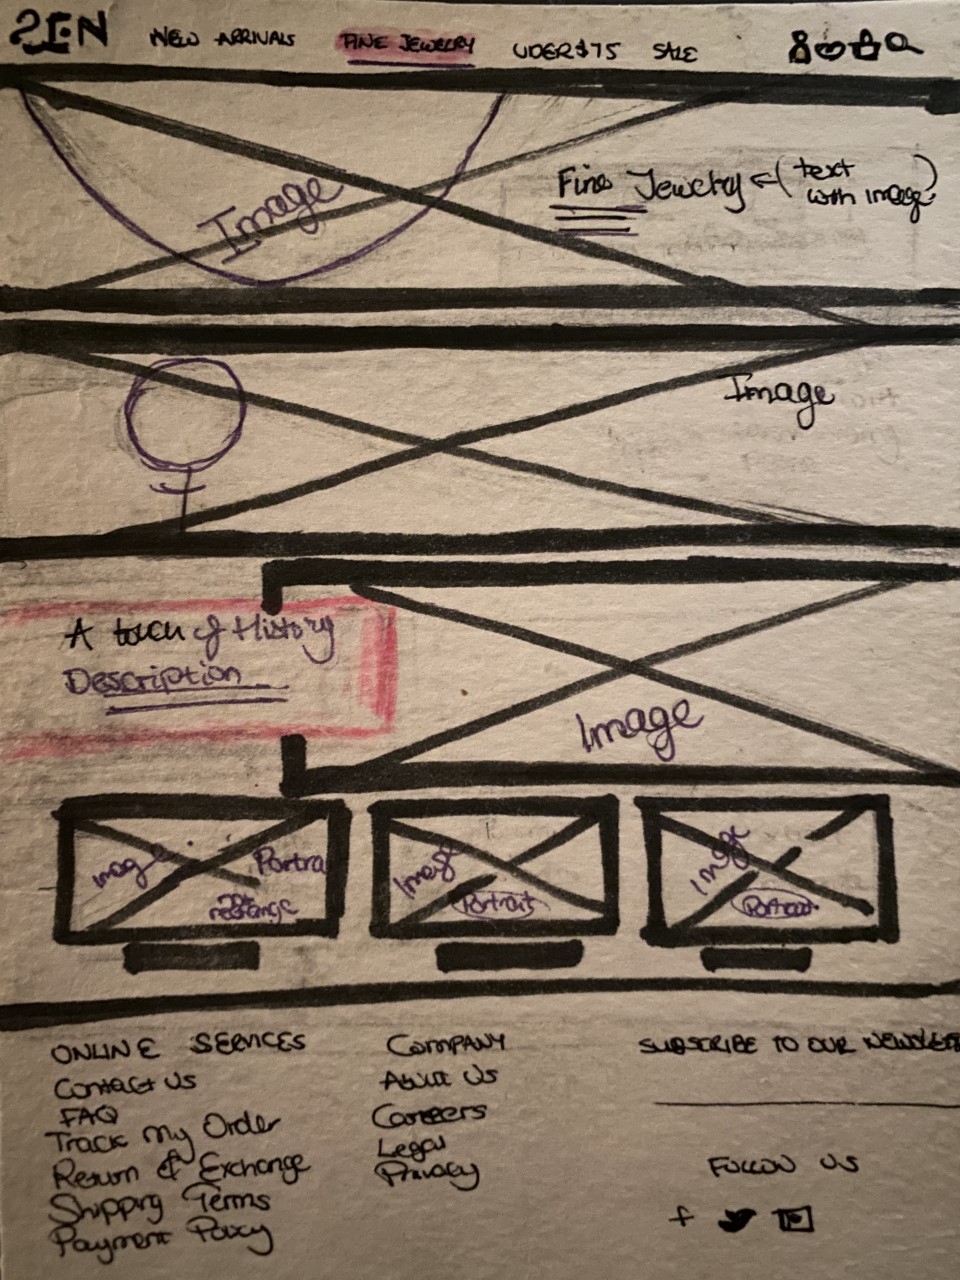 ZEN NEW ARRIVALS FINE JEWELRY UDER $75 SALE
Image
Fine Jewelry
(text
with image)
Image
A touch of History
Description
Image
Imag
Portra
rectange
Image
Portrait
Image
Portrait
ONLINE SERVICES
Contact Us
FAQ
Track My Order
Return & Exchange
Shipping Terms
Payment Policy
COMPANY
About Us
Careers
Legal
Privacy
SUBSCRIBE TO OUR NEWSLETT
FOLLOW US
f